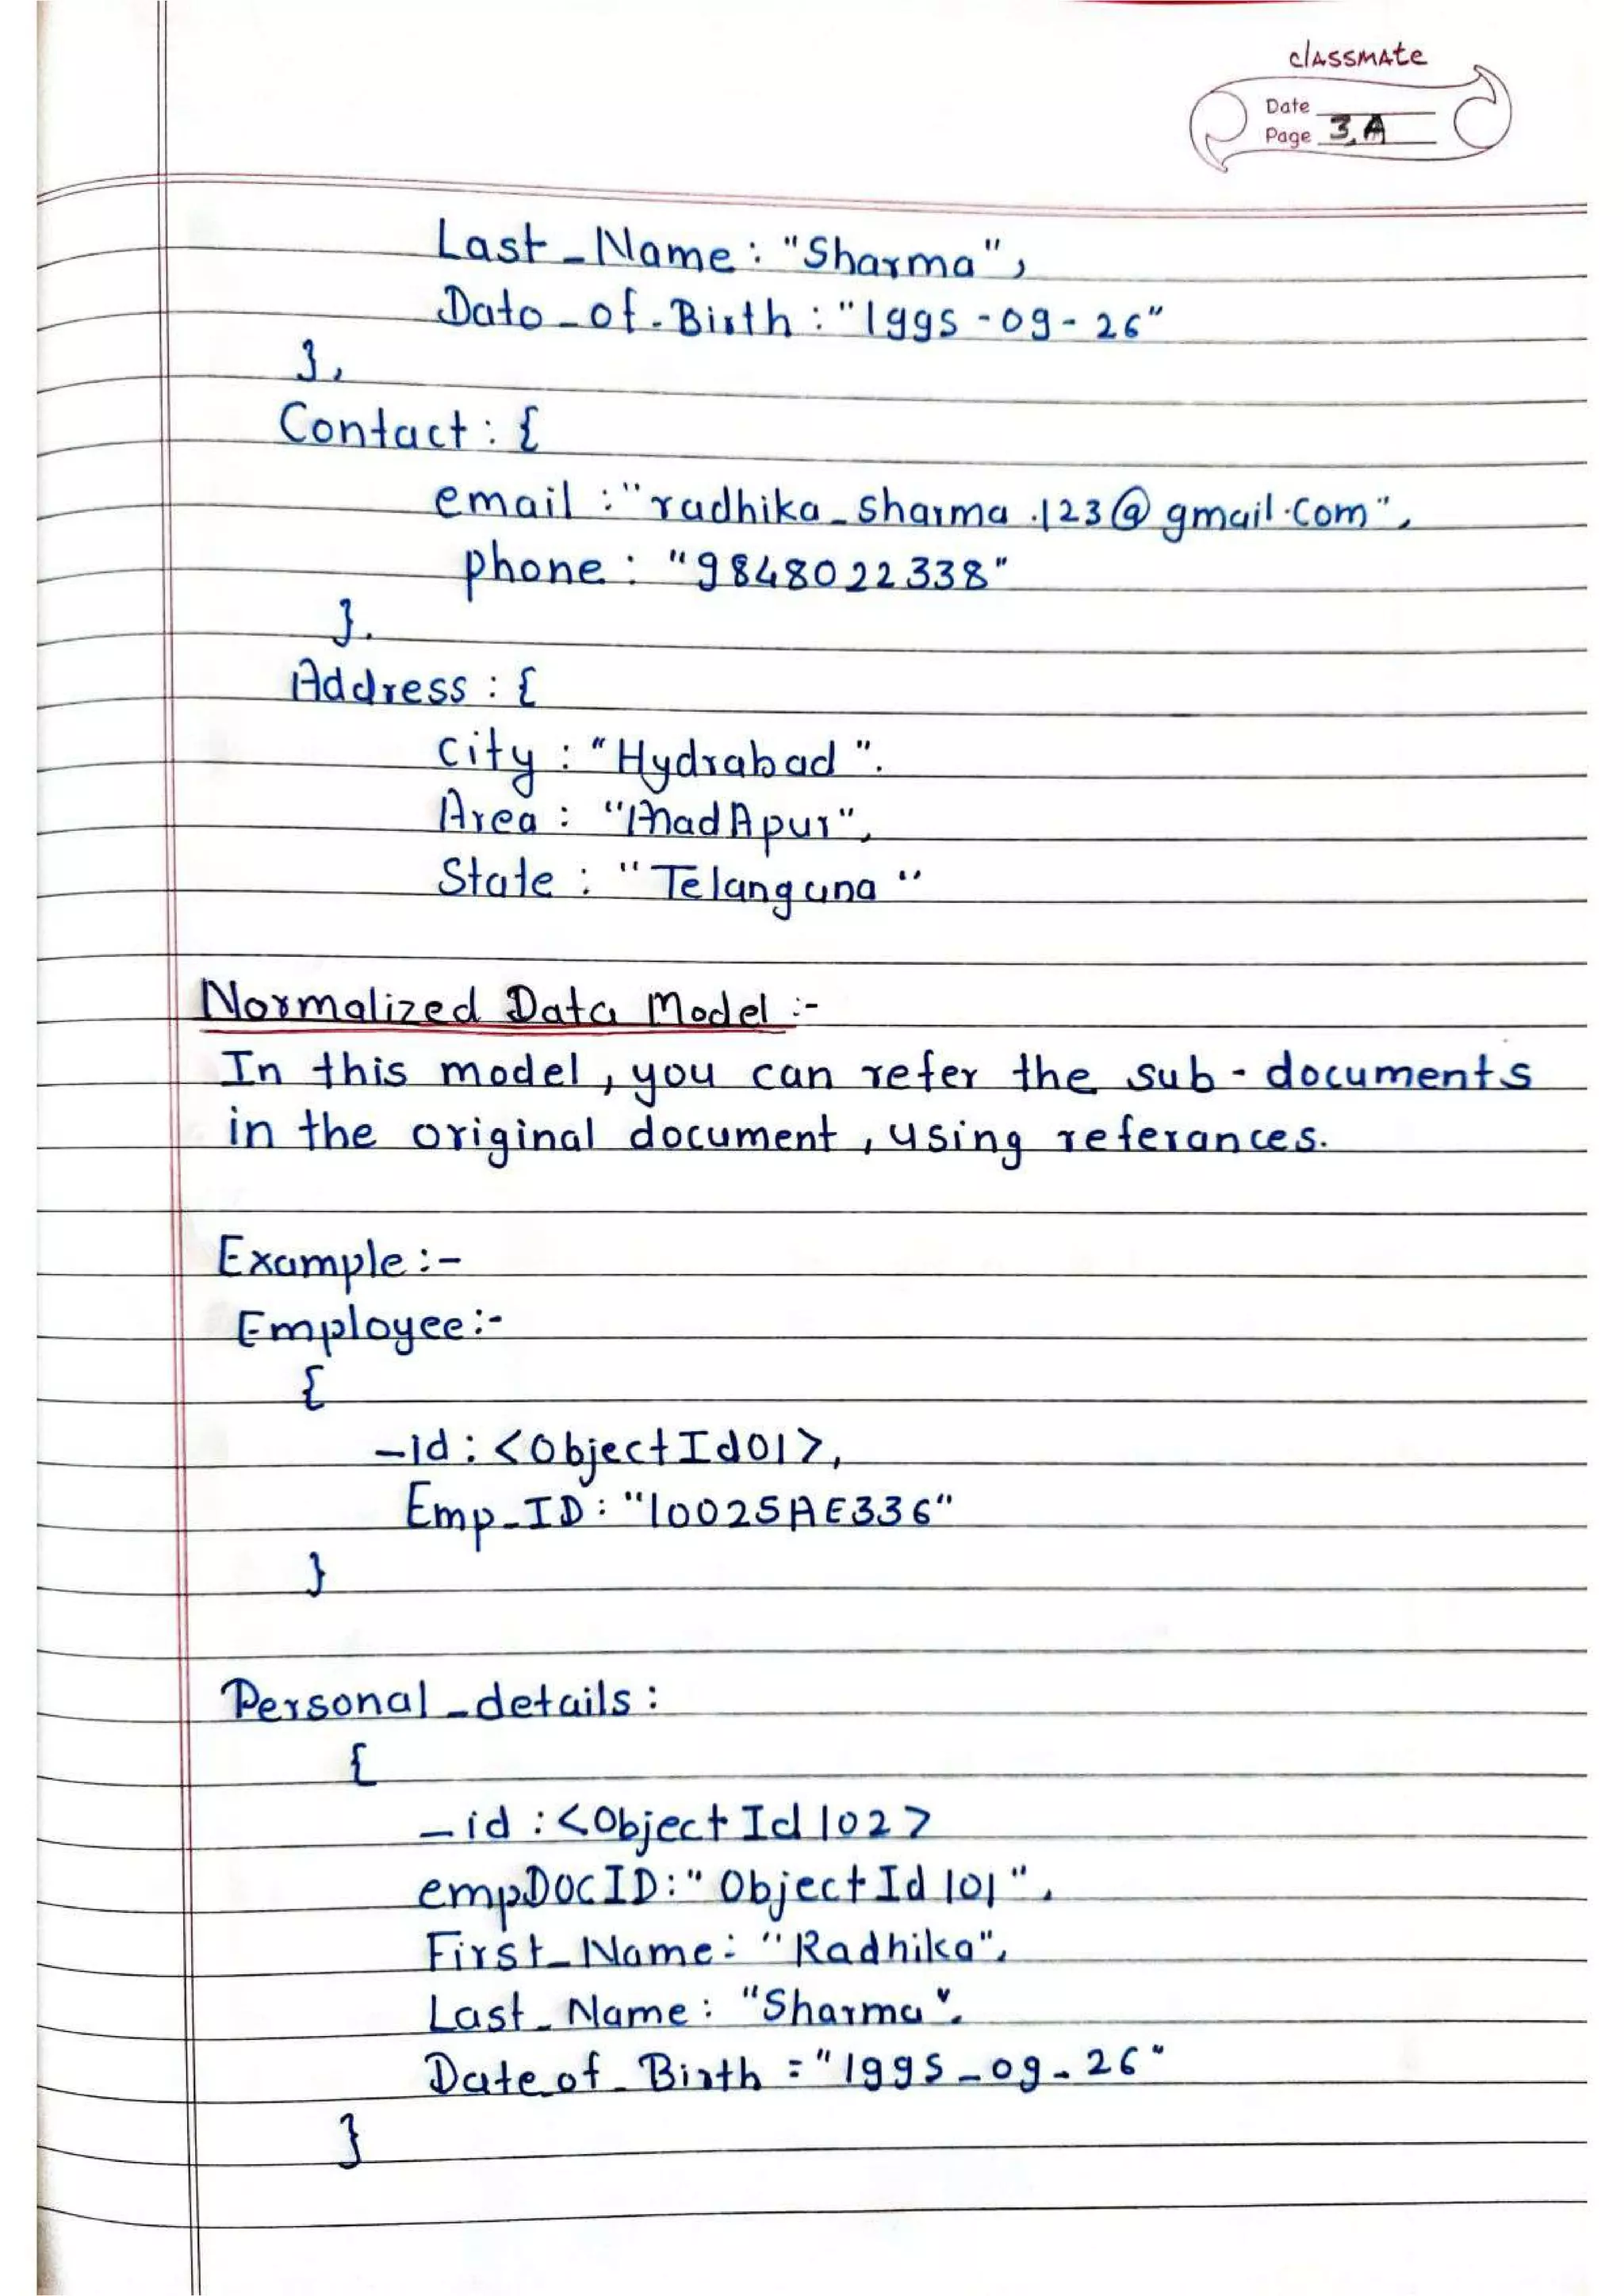 classmate
Date
Page 3,A
Last_Name : "Sharma",
Dato_of_Birth : "1995-09-26"
},
Contact : {
email : "radhika_sharma.123@gmail.com",
phone : "9848022338"
}.
Address : {
city : "Hydrabad".
Area : "MadApur",
State : "Telangana"
Normalized Data Model :-
In this model, you can refer the sub-documents
in the original document, using referances.
Example :-
Employee:-
{
_id : <ObjectId01>,
Emp_ID : "10025AE336"
}
Personal_details :
{
_id : <ObjectId102>
empDOCID: "ObjectId101",
First_Name: "Radhika",
Last_Name : "Sharma".
Date_of_Birth : "1995-09-26"
}